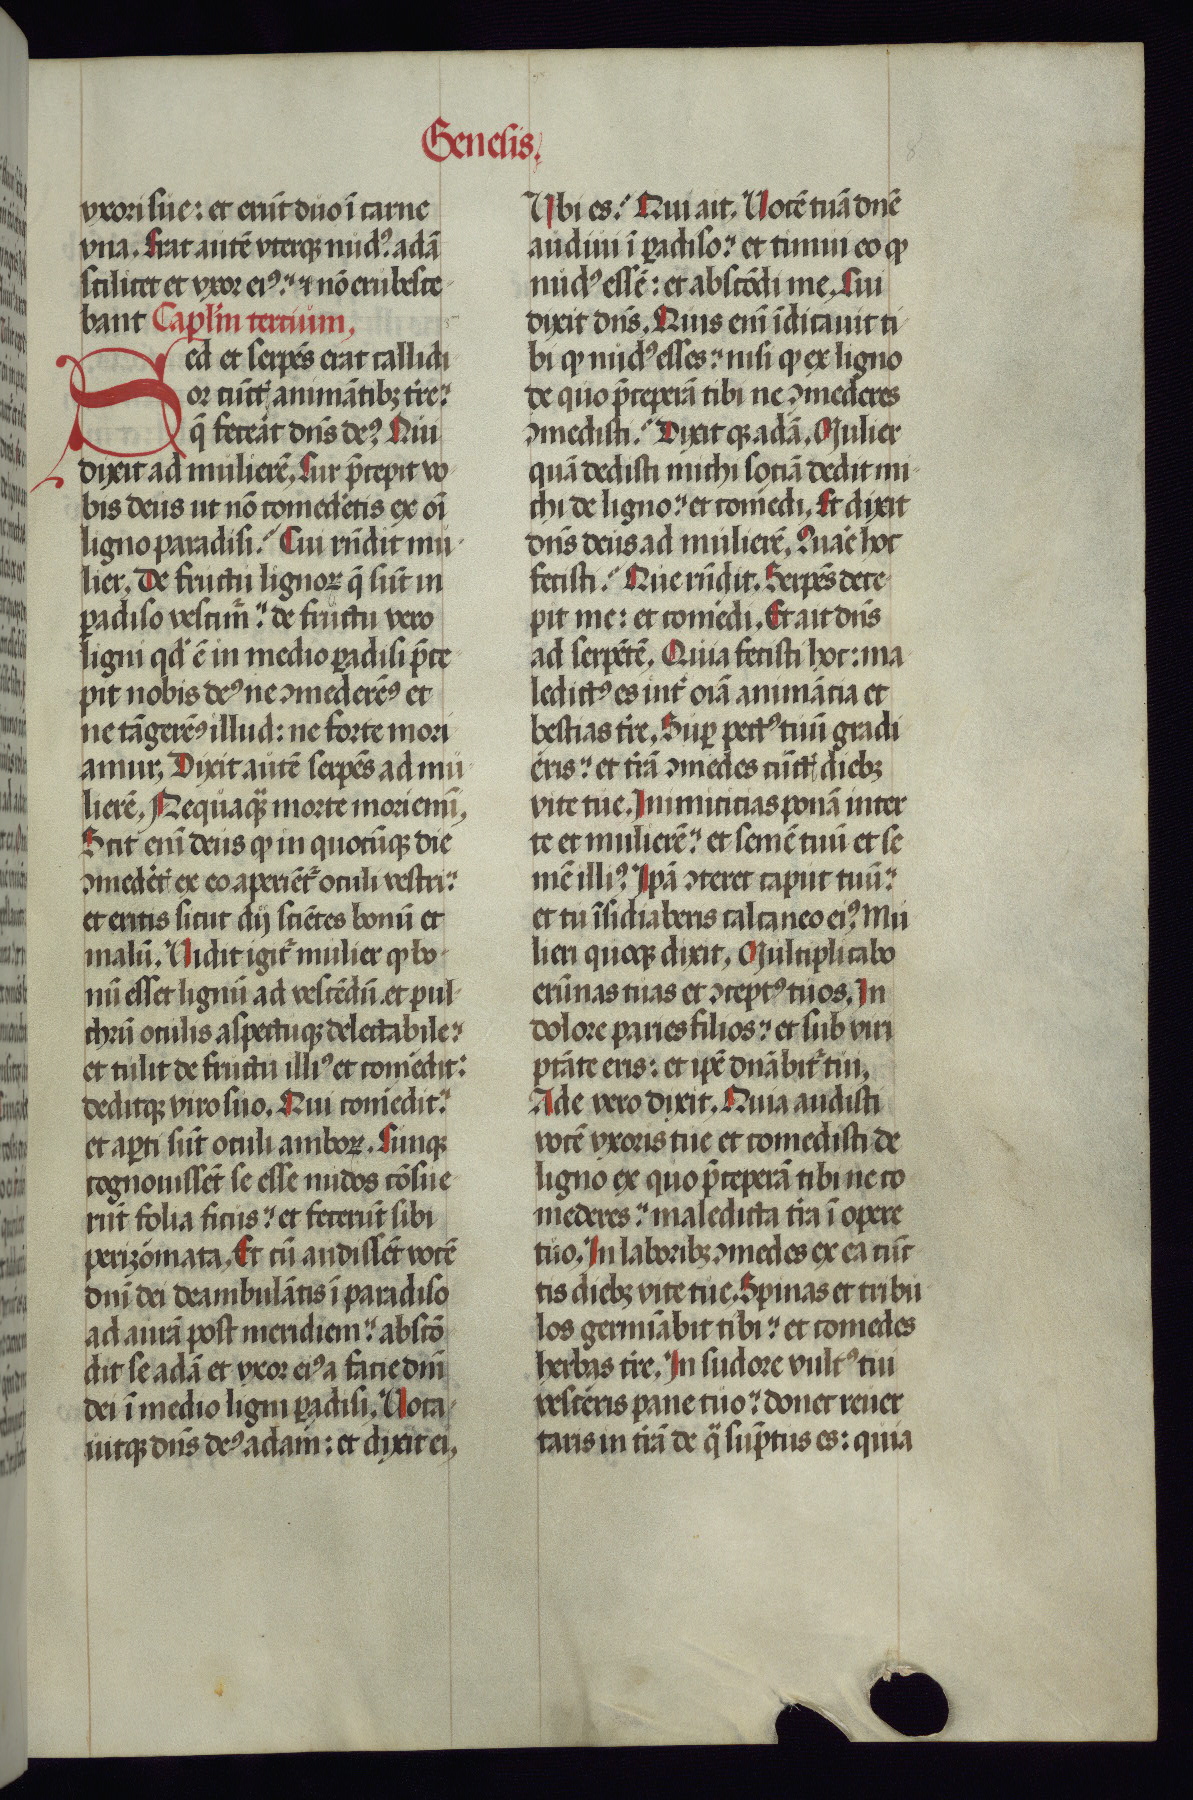 Genesis.
vxori sue: et erūt duo ī carne
vna. Erat autē vterqꝫ nudꝰ adā
scilicet et vxor eiꝰ: ⁊ nō erubesce-
bant Caplm̄ tercium.
Sed et serpēs erat callidi
or cūct̄ animātibꝫ tr̄e:
q̄ fecerāt dn̄s deꝰ. Qui
dixit ad mulierē. Cur p̄cepit vo-
bis deus ut nō comederetis ex oī
ligno paradisi? Cui rn̄dit mu-
lier. De fructu lignoꝝ q̄ sūt in
ꝑadiso vescimr̄: de fructu vero
ligni qd̄ ē in medio ꝑadisi p̄ce
pit nobis deꝰ ne ꝯmederēꝰ et
ne tāgerēꝰ illud: ne forte mori
amur. Dixit autē serpēs ad mu
lierē. Nequaqᷓ morte moriemī.
Scit enī deus ꝙ in quocūqꝫ die
ꝯmedet̄ ex eo aperiēt̄ oculi vestri:
et eritis sicut dij sciētes bonū et
malū. Vidit igit̄ mulier ꝙ bo-
nū esset lignū ad vescēdū et pul-
chrū oculis aspectuqꝫ delectabile:
et tulit de fructu illiꝰ et comedit:
deditqꝫ viro suo. Qui comedit:
et aꝑti sūt oculi amboꝝ. Cunqꝫ
cognouissēt se esse nudos cōsue
rūt folia ficus: et fecerūt sibi
perizomata. Et cū audissēt vocē
dnī dei deambulātis ī paradiso
ad aurā post meridiem: abscō
dit se adā et vxor eiꝰ a facie dnī
dei ī medio ligni ꝑadisi. Voca-
uitqꝫ dn̄s deꝰ adam: et dixit ei.
Vbi es? Qui ait. Vocē tuā dn̄e
audiui ī ꝑadiso: et timui eo ꝙ
nudꝰ essē: et abscōdi me. Cui
dixit dn̄s. Quis enī īdicauit ti-
bi ꝙ nudꝰ esses: nisi ꝙ ex ligno
de quo p̄ceperā tibi ne ꝯmederes
ꝯmedisti? Dixitqꝫ adā. Mulier
quā dedisti michi sociā dedit mi-
chi de ligno: et comedi. Et dixit
dn̄s deus ad mulierē. Quare hoc
fecisti? Que rn̄dit. Serpēs dece-
pit me: et comedi. Et ait dn̄s
ad serpētē. Quia fecisti hoc: ma-
ledictꝰ es int̄ oīa animācia et
bestias tr̄e. Suꝑ pectꝰ tuū gradi
eris: et tr̄ā ꝯmedes cūct̄ diebꝫ
vite tue. Inimicicias ponā inter
te et mulierē: et semē tuū et se
mē illiꝰ. Ipā ꝯteret caput tuū:
et tu īsidiaberis calcaneo eiꝰ. Mu
lieri quoqꝫ dixit. Multiplicabo
erūnas tuas et ꝯceptꝰ tuos. In
dolore paries filios: et sub viri
ptāte eris: et ip̄e dn̄abit̄ tui.
Ade vero dixit. Quia audisti
vocē vxoris tue et comedisti de
ligno ex quo p̄ceperā tibi ne co
mederes: maledicta tr̄a ī opere
tuo. In laboribꝫ ꝯmedes ex ea cūc
tis diebꝫ vite tue. Spinas et tribu
los germiābit tibi: et comedes
herbas tr̄e. In sudore vultꝰ tui
vesceris pane tuo: donec reuer
taris in tr̄ā de qᷓ sūptus es: quia